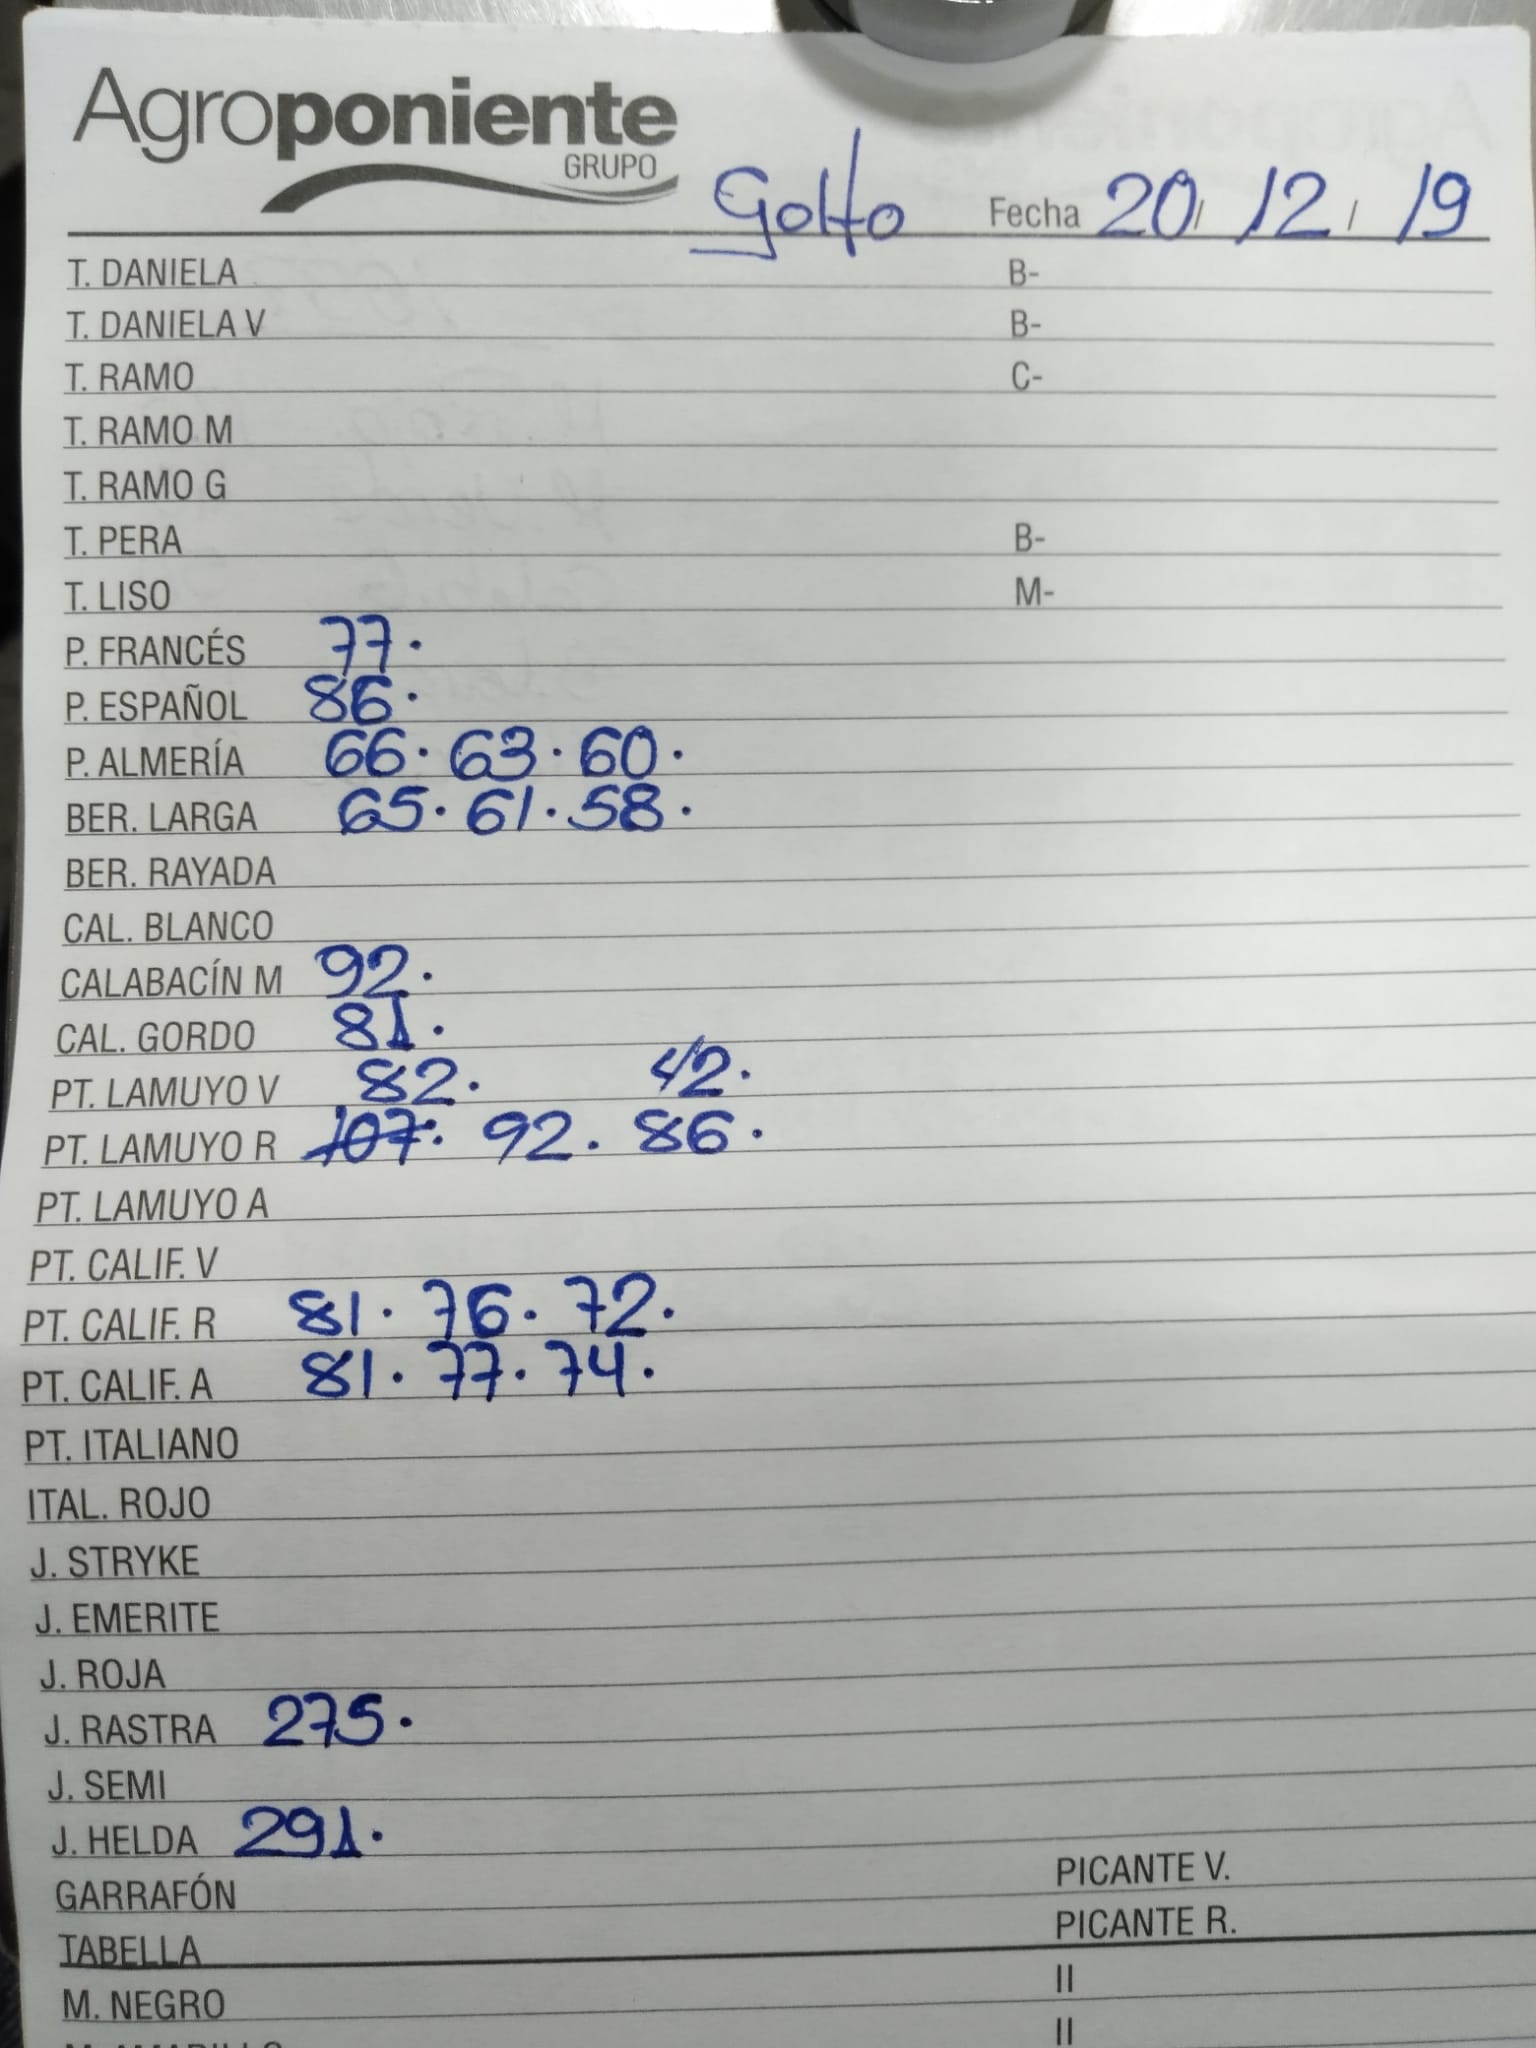 Agroponiente
GRUPO
Golfo Fecha 20/ 12 / 19
T. DANIELA B-
T. DANIELA V B-
T. RAMO C-
T. RAMO M
T. RAMO G
T. PERA B-
T. LISO M-
P. FRANCÉS 77.
P. ESPAÑOL 86.
P. ALMERÍA 66. 63. 60.
BER. LARGA 65. 61. 58.
BER. RAYADA
CAL. BLANCO
CALABACÍN M 92.
CAL. GORDO 81.
PT. LAMUYO V 82. 42.
PT. LAMUYO R 107. 92. 86.
PT. LAMUYO A
PT. CALIF. V
PT. CALIF. R 81. 76. 72.
PT. CALIF. A 81. 77. 74.
PT. ITALIANO
ITAL. ROJO
J. STRYKE
J. EMERITE
J. ROJA
J. RASTRA 275.
J. SEMI
J. HELDA 291.
GARRAFÓN PICANTE V.
TABELLA PICANTE R.
M. NEGRO II
II